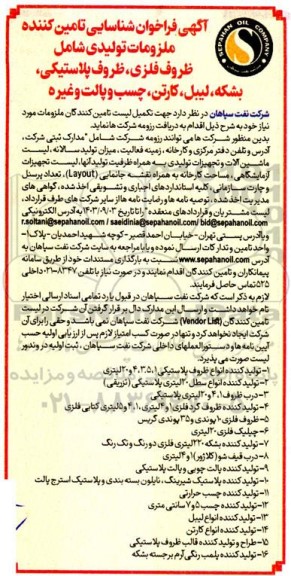 SEPAHAN OIL COMPANY
آگهی فراخوان شناسایی تامین کننده
ملزومات تولیدی شامل
ظروف فلزی، ظروف پلاستیکی،
بشکه، لیبل، کارتن، چسب و پالت و غیره
شرکت نفت سپاهان در نظر دارد جهت تکمیل لیست تامین کنندگان ملزومات مورد
نیاز خود به شرح ذیل اقدام به دریافت رزومه شرکت ها نماید.
بدین منظور شرکت ها می توانند رزومه شرکت شامل "مدارک ثبتی شرکت،
آدرس و تلفن دفتر مرکزی و کارخانه، زمینه فعالیت، میزان تولید سالانه، لیست
ماشین آلات و تجهیزات تولیدی به همراه ظرفیت تولید آنها، لیست تجهیزات
آزمایشگاهی، مساحت کارخانه به همراه نقشه جانمایی (Layout)، تعداد پرسنل
و چارت سازمانی، کلیه استانداردهای اجباری و تشویقی اخذ شده، گواهی های
مدیریت اخذ شده، توصیه نامه ها و رضایت نامه ها از سایر شرکت های طرف قرارداد،
لیست مشتریان و قراردادهای منعقده" را تا تاریخ ۱۴۰۲/۰۹/۰۳ به آدرس الکترونیکی
r.soltani@sepahanoil.com/ saeidinia@sepahanoil.com/ bid@sepahanoil.com
و یا آدرس پستی تهران-خیابان احمد قصیر-کوچه شهید احمدیان-پلاک ۸-
واحد تامین و تدارکات ارسال نموده و یا با مراجعه به سایت شرکت نفت سپاهان به
آدرس www.sepahanoil.com نسبت به بارگذاری مستندات خود از طریق سامانه
پیمانکاران و تامین کنندگان اقدام نمایند و در صورت نیاز با تلفن ۸۳۴۷-۰۲۱ داخلی
۵۲۵ تماس حاصل فرمایند.
لازم به ذکر است که شرکت نفت سپاهان در قبول یا رد تمامی اسناد ارسالی اختیار
تام خواهد داشت و ارسال این مدارک دال بر قرار گرفتن آن شرکت در لیست
تامین کنندگان (Vendor List) شرکت نفت سپاهان نمی باشد و حقی را برای آن
شرکت ایجاد نخواهد کرد و تنها در صورت کسب امتیاز لازم پس از ارزیابی اولیه حسب
آیین نامه ها و دستورالعملهای داخلی شرکت نفت سپاهان، ثبت اولیه در وندور
لیست صورت می پذیرد.
۱-تولید کننده انواع ظروف پلاستیکی ۱، ۳،۵، ۴ و ۲۰ لیتری
۲-تولید کننده انواع سطل ۲۰ لیتری پلاستیکی (تزریقی)
۳-درب ظروف ۱، ۴ و ۲۰ لیتری پلاستیکی
۴-تولید کننده ظروف گرد فلزی ۱ و ۴ لیتری، ۱، ۴ و ۵ لیتری کتابی فلزی
۵-ظروف فلزی ۱۰ پوندی و ۳۵ پوندی گریس
۶-چیلیک فلزی ۲۰ لیتری
۷-تولید کننده بشکه ۲۲۰ لیتری فلزی دو رنگ و تک رنگ
۸-درب قیف شو (کلاژور) ۱ و ۴ لیتری
۹-تولید کننده پالت چوبی و پالت پلاستیکی
۱۰-تولید کننده پلاستیک شیرینگ، نایلون بسته بندی و پلاستیک استرچ پالت
۱۱-تولید کننده چسب حرارتی
۱۲-تولید کننده چسب ۵ و ۷ سانتی متری
۱۳-تولید کننده انواع لیبل
۱۴-تولید کننده انواع کارتن
۱۵-طراح و تولید کننده قالب ظروف پلاستیکی
۱۶-تولید کننده پلمب رنگی آرم برجسته بشکه